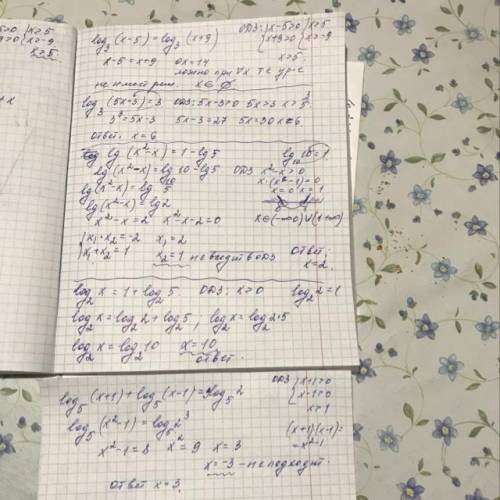 log₃(x-5) = log₃(x+9) ОДЗ: {x-5>0 {x>5
{x+9>0 {x>-9
x-5 = x+9 0x=14 x>5
ложно при ∀x
не имеет реш. x∈∅
log₃(5x-3)=3 ОДЗ: 5x-3>0 5x>3
3³=5x-3 5x-3=27 5x=30 x=6
Ответ. x=6
lg(x²-x) = 1-lg5 lg10=1
lg(x²-x) = lg10-lg5 ОДЗ x²-x>0
lg(x²-x) = lg 10/5
x=0 x=1
lg(x²-x) = lg2
x²-x=2 x²-x-2=0
{x₁·x₂=-2 x₁=2
{x₁+x₂=1 x₂=1 не входит в ОДЗ Ответ:
x=2.
log₂x = 1+log₂5. ОДЗ: x>0 log₂2=1
log₂x = log₂2+log₂5; log₂x=log₂2·5
log₂x = log₂10 x=10
ответ.
log₅(x+1)+log₅(x-1)= log₅2 ОДЗ {x+1>0
{x-1>0
x>1
log₅(x²-1)=log₅2³
(x+1)(x-1)=
=x²-1
x²-1=8 x²=9 x=3
x=-3-не подходит.
Ответ x=3.